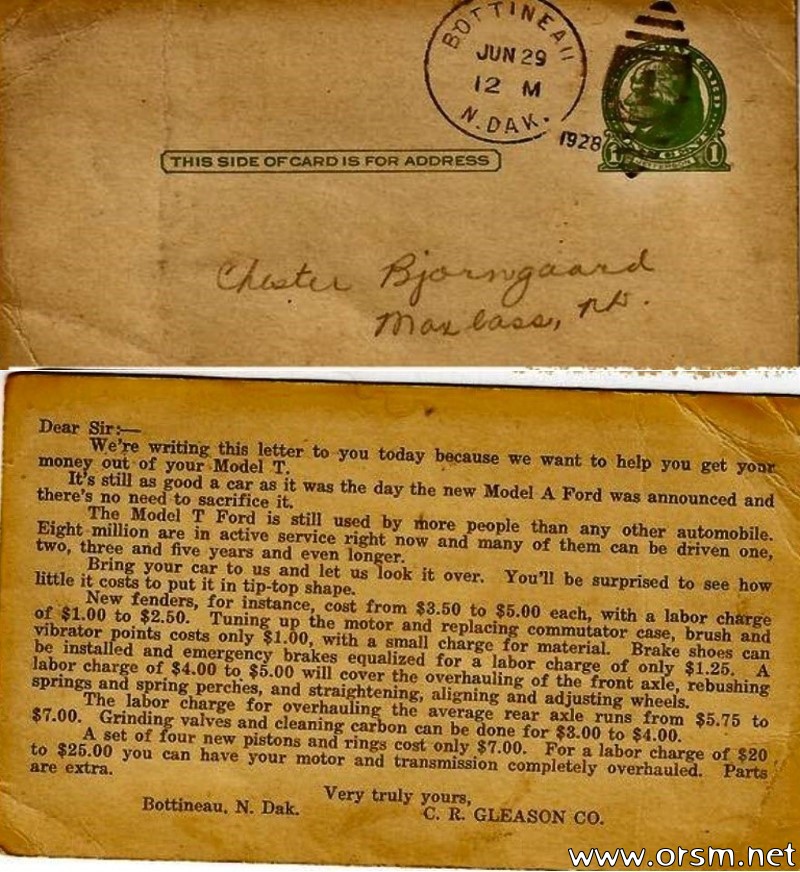 BOTTINEAU
JUN 29
12 M
N. DAK.
1928
1 JEFFERSON 1
THIS SIDE OF CARD IS FOR ADDRESS
Chester Bjorngaard
Maxbass, n.D.
Dear Sir:—
We're writing this letter to you today because we want to help you get your
money out of your Model T.
It's still as good a car as it was the day the new Model A Ford was announced and
there's no need to sacrifice it.
The Model T Ford is still used by more people than any other automobile.
Eight million are in active service right now and many of them can be driven one,
two, three and five years and even longer.
Bring your car to us and let us look it over. You'll be surprised to see how
little it costs to put it in tip-top shape.
New fenders, for instance, cost from $3.50 to $5.00 each, with a labor charge
of $1.00 to $2.50. Tuning up the motor and replacing commutator case, brush and
vibrator points costs only $1.00, with a small charge for material. Brake shoes can
be installed and emergency brakes equalized for a labor charge of only $1.25. A
labor charge of $4.00 to $5.00 will cover the overhauling of the front axle, rebushing
springs and spring perches, and straightening, aligning and adjusting wheels.
The labor charge for overhauling the average rear axle runs from $5.75 to
$7.00. Grinding valves and cleaning carbon can be done for $3.00 to $4.00.
A set of four new pistons and rings cost only $7.00. For a labor charge of $20
to $25.00 you can have your motor and transmission completely overhauled. Parts
are extra.
Very truly yours,
Bottineau, N. Dak. C. R. GLEASON CO.
www.orsm.net